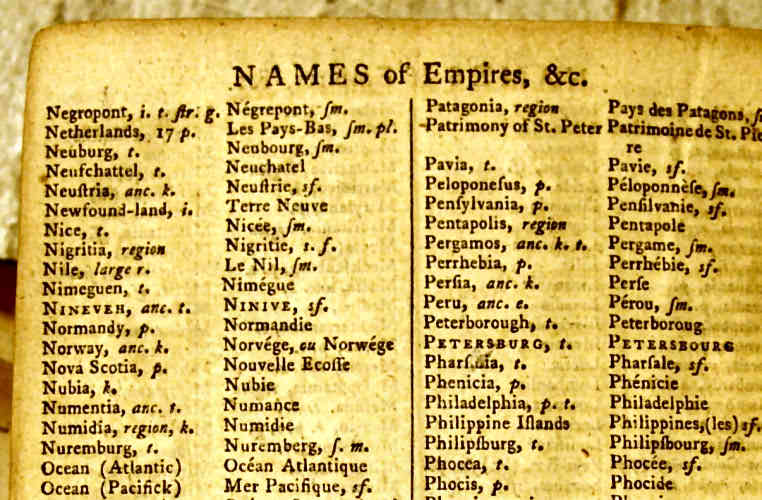 NAMES of Empires, &c.
Negropont, i. t. ſtr. g. Négrepont, ſm.
Netherlands, 17 p. Les Pays-Bas, ſm. pl.
Neuburg, t. Neubourg, ſm.
Neufchattel, t. Neuchatel
Neuſtria, anc. k. Neuſtrie, sf.
Newfound-land, i. Terre Neuve
Nice, t. Nicée, ſm.
Nigritia, region Nigritie, s. f.
Nile, large r. Le Nil, ſm.
Nimeguen, t. Nimégue
NINEVEH, anc. t. NINIVE, sf.
Normandy, p. Normandie
Norway, anc. k. Norvége, ou Norwége
Nova Scotia, p. Nouvelle Ecoſſe
Nubia, k. Nubie
Numentia, anc. t. Numance
Numidia, region, k. Numidie
Nuremburg, t. Nuremberg, ſ. m.
Ocean (Atlantic) Océan Atlantique
Ocean (Pacifick) Mer Pacifique, sf.
Patagonia, region Pays des Patagons,
Patrimony of St. Peter Patrimoine de St. Pie
re
Pavia, t. Pavie, sf.
Peloponeſus, p. Péloponnèſe, ſm.
Penſylvania, p. Penſilvanie, sf.
Pentapolis, region Pentapole
Pergamos, anc. k. t. Pergame, ſm.
Perrhebia, p. Perrhébie, sf.
Perſia, anc. k. Perſe
Peru, anc. e. Pérou, ſm.
Peterborough, t. Peterboroug
PETERSBURG, t. PETERSBOURG
t. Pharſale, sf.
Phenicia, p. Phénicie
Philadelphia, p. t. Philadelphie
Philippine Iſlands Philippines, (les) sf.
Philipſburg, t. Philipſbourg, ſm.
Phocea, t. Phocée, sf.
Phocis, p. Phocide